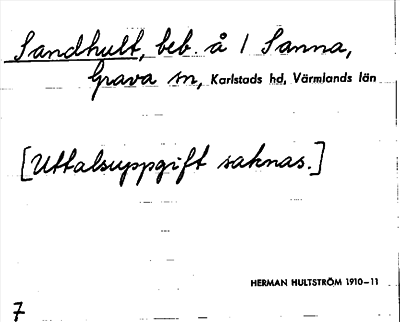 Sandhult, beb. å 1 Sanna,
Grava sn, Karlstads hd, Värmlands län
[Uttalsuppgift saknas.]
HERMAN HULTSTRÖM 1910–11
7